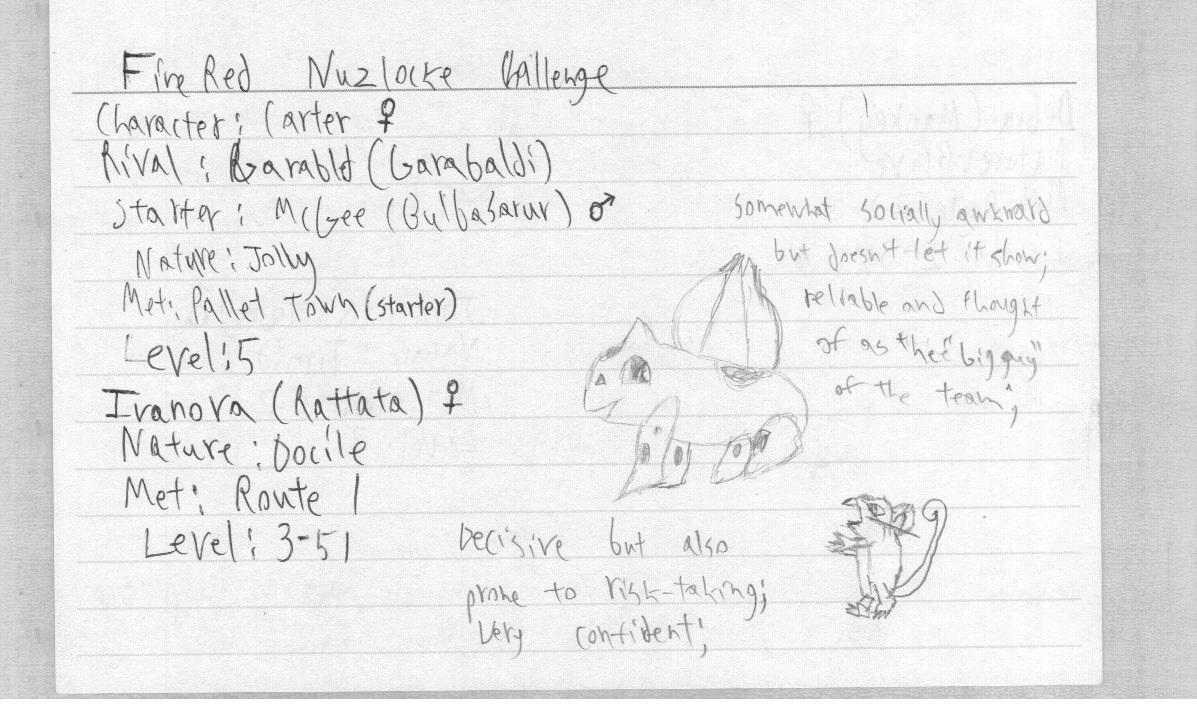 Fire Red Nuzlocke Challenge
Character: Carter ♀
Rival: Garabld (Garabaldi)
Starter: McGee (Bulbasarur) ♂
Nature: Jolly
Met: Pallet Town (starter)
Level: 5
somewhat socially awkward
but doesn't let it show;
reliable and thought
of as thee "big guy"
of the team;
Ivanova (Rattata) ♀
Nature: Docile
Met: Route 1
Level: 3-51
Decisive but also
prone to risk-taking;
very confident;